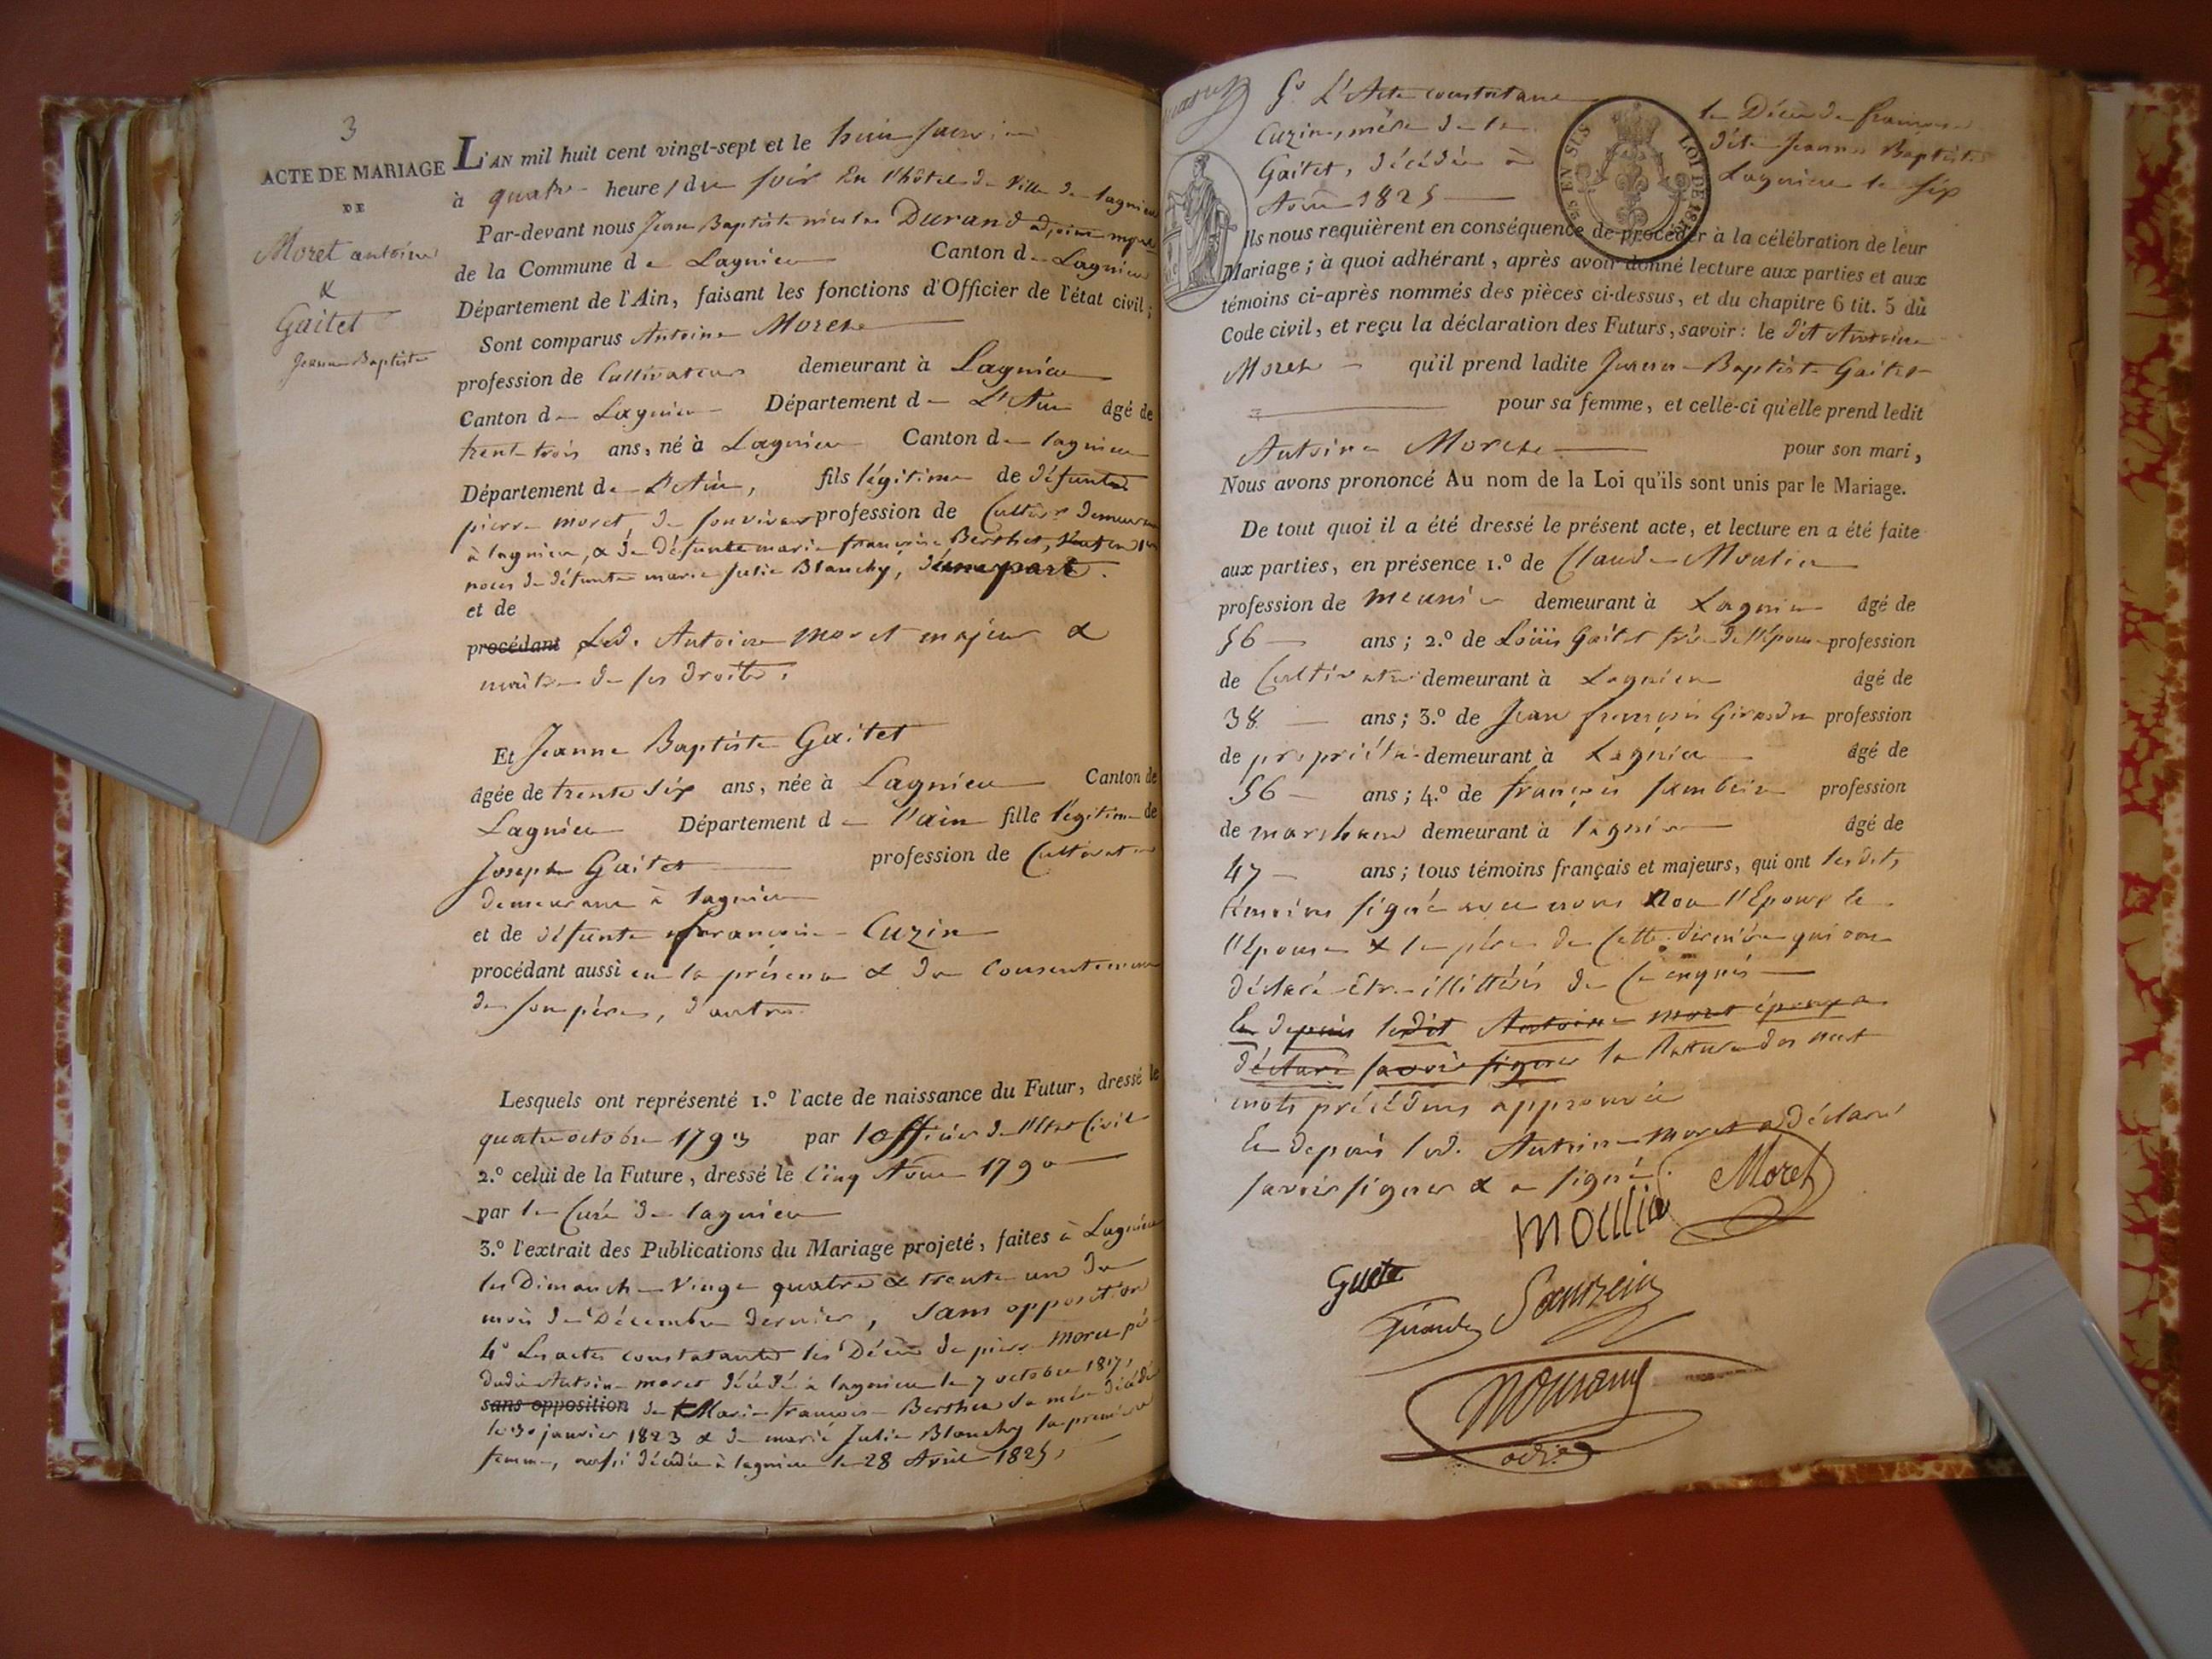 3
ACTE DE MARIAGE
DE
Moret antoine
&
Gaitet
Jeanne Baptiste
L'AN mil huit cent vingt-sept et le huit Janvier
à quatre heures du soir En l'hôtel de Ville de lagnieu
Par-devant nous Jean Baptiste nicolas Durand adjoint
de la Commune de Lagnieu Canton de Lagnieu
Département de l'Ain, faisant les fonctions d'Officier de l'état civil;
Sont comparus Antoine Moret
profession de Cultivateur demeurant à Lagnieu
Canton de Lagnieu Département de L'Ain âgé de
trente trois ans, né à Lagnieu Canton de lagnieu
Département de L'Ain, fils légitime de défunts
pierre moret, de son vivant profession de Cultivr demeurant
à lagnieu, & de défunte marie françoise Berthet, veuf en 1eres
noces de défunte marie Julie Blanchy, d'une part.
et de
procédant Led. Antoine moret majeur &
maître de ses droits,
Et Jeanne Baptiste Gaitet
âgée de trente six ans, née à Lagnieu Canton de
Lagnieu Département de l'ain fille légitime de
Joseph Gaitet profession de Cultivateur
demeurant à lagnieu
et de défunte françoise Cuzin
procédant aussi en la présence & du Consentement
de son père, d'autre.
Lesquels ont représenté 1.º l'acte de naissance du Futur, dressé le
quatre octobre 1793 par l'officier de l'Etat Civil
2.º celui de la Future, dressé le Cinq Aout 1790
par le Curé de lagnieu
3.º l'extrait des Publications du Mariage projeté, faites à Lagnieu
les Dimanche Vingt quatre & trente un du
mois de Décembre dernier, sans opposition
4º Les actes constatants les Décès de pierre Moret père
dudit Antoine moret décédé à lagnieu le 7 octobre 1817,
sans opposition de Marie françoise Berthet sa mère décédée
le 30 janvier 1823 & de marie Julie Blanchy la première
femme, aussi décédée à lagnieu le 28 Avril 1825,
5º L'Acte constatant le Décès de françoise
Cuzin, mère de la dite Jeanne Baptiste
Gaitet, décédée à Lagnieu le six
Aout 1825
25 C. EN SUS LOI DE 1816
Ils nous requièrent en conséquence de procéder à la célébration de leur
Mariage; à quoi adhérant, après avoir donné lecture aux parties et aux
témoins ci-après nommés des pièces ci-dessus, et du chapitre 6 tit. 5 du
Code civil, et reçu la déclaration des Futurs, savoir: le dit Antoine
Moret qu'il prend ladite Jeanne Baptiste Gaitet
pour sa femme, et celle-ci qu'elle prend ledit
Antoine Moret pour son mari,
Nous avons prononcé Au nom de la Loi qu'ils sont unis par le Mariage.
De tout quoi il a été dressé le présent acte, et lecture en a été faite
aux parties, en présence 1.º de Claude Moulin
profession de meunier demeurant à Lagnieu âgé de
56 ans; 2.º de Loüis Gaitet frère de l'épouse profession
de Cultivateur demeurant à Lagnieu âgé de
38 ans; 3.º de Jean françois Girardin profession
de propriétre demeurant à Lagnieu âgé de
56 ans; 4.º de françois profession
de marchand demeurant à lagnieu âgé de
47 ans; tous témoins français et majeurs, qui ont lesdits
témoins signé avec nous Non l'Epoux &
l'Epouse & le père de Cette dernière qui ont
déclaré être illittérés de Ce enquis
En depuis ledit Antoine moret époux a
déclaré savoir signer la Rature des neuf
mots précédents approuvée
En depuis led. Antoine moret a déclaré
savoir signer & a signé.
Moret
Moulin